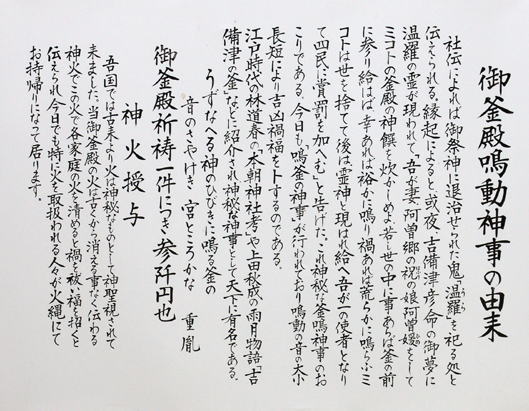 御釜殿鳴動神事の由来
社伝によれば御祭神に退治せられた鬼「温羅」を祀る処と
うら
伝えられる。縁起によると、或夜、吉備津彦命の御夢に
温羅の霊が現われて、吾が妻、阿曽郷の祝の娘阿曽媛をして
ミコトの釜殿の神饌を炊かしめよ、若し世の中に事あれば釜の前
に参り給はば幸あれば裕かに鳴り禍あれば荒らかに鳴らふミ
コトは世を捨てて後は霊神と現はれ給へ吾が一の使者となり
て四民に賞罰を加へむ」と告げた。これ神秘な釜鳴神事のお
こりである。今日も「鳴釜の神事」が行われており鳴動の音の大小
長短により吉凶禍福をトするのである。
江戸時代の林道春の「本朝神社考」や上田秋成の雨月物語「吉
備津の釜」などに紹介され神秘な神事として天下に有名である。
うずなへる神のひびきに鳴る釜の
音のさやけき宮ところかな　重胤
御釜殿祈祷一件につき参阡円也
神火授与
吾国では古来より火は神秘なものとして神聖視されて
来ました。当御釜殿の火は古くから消える事なく伝わる
神火でこの火で各家庭の火を清めると禍を祓い福を招くと
伝えられ今日でも特に火を取扱われる人々が火縄にて
お持帰りになって居ります。